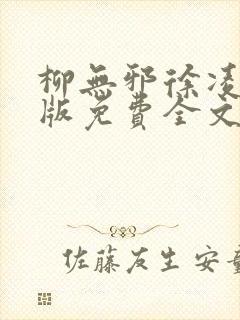 柳無邪徐凌
版免費全文
佐藤友生安童